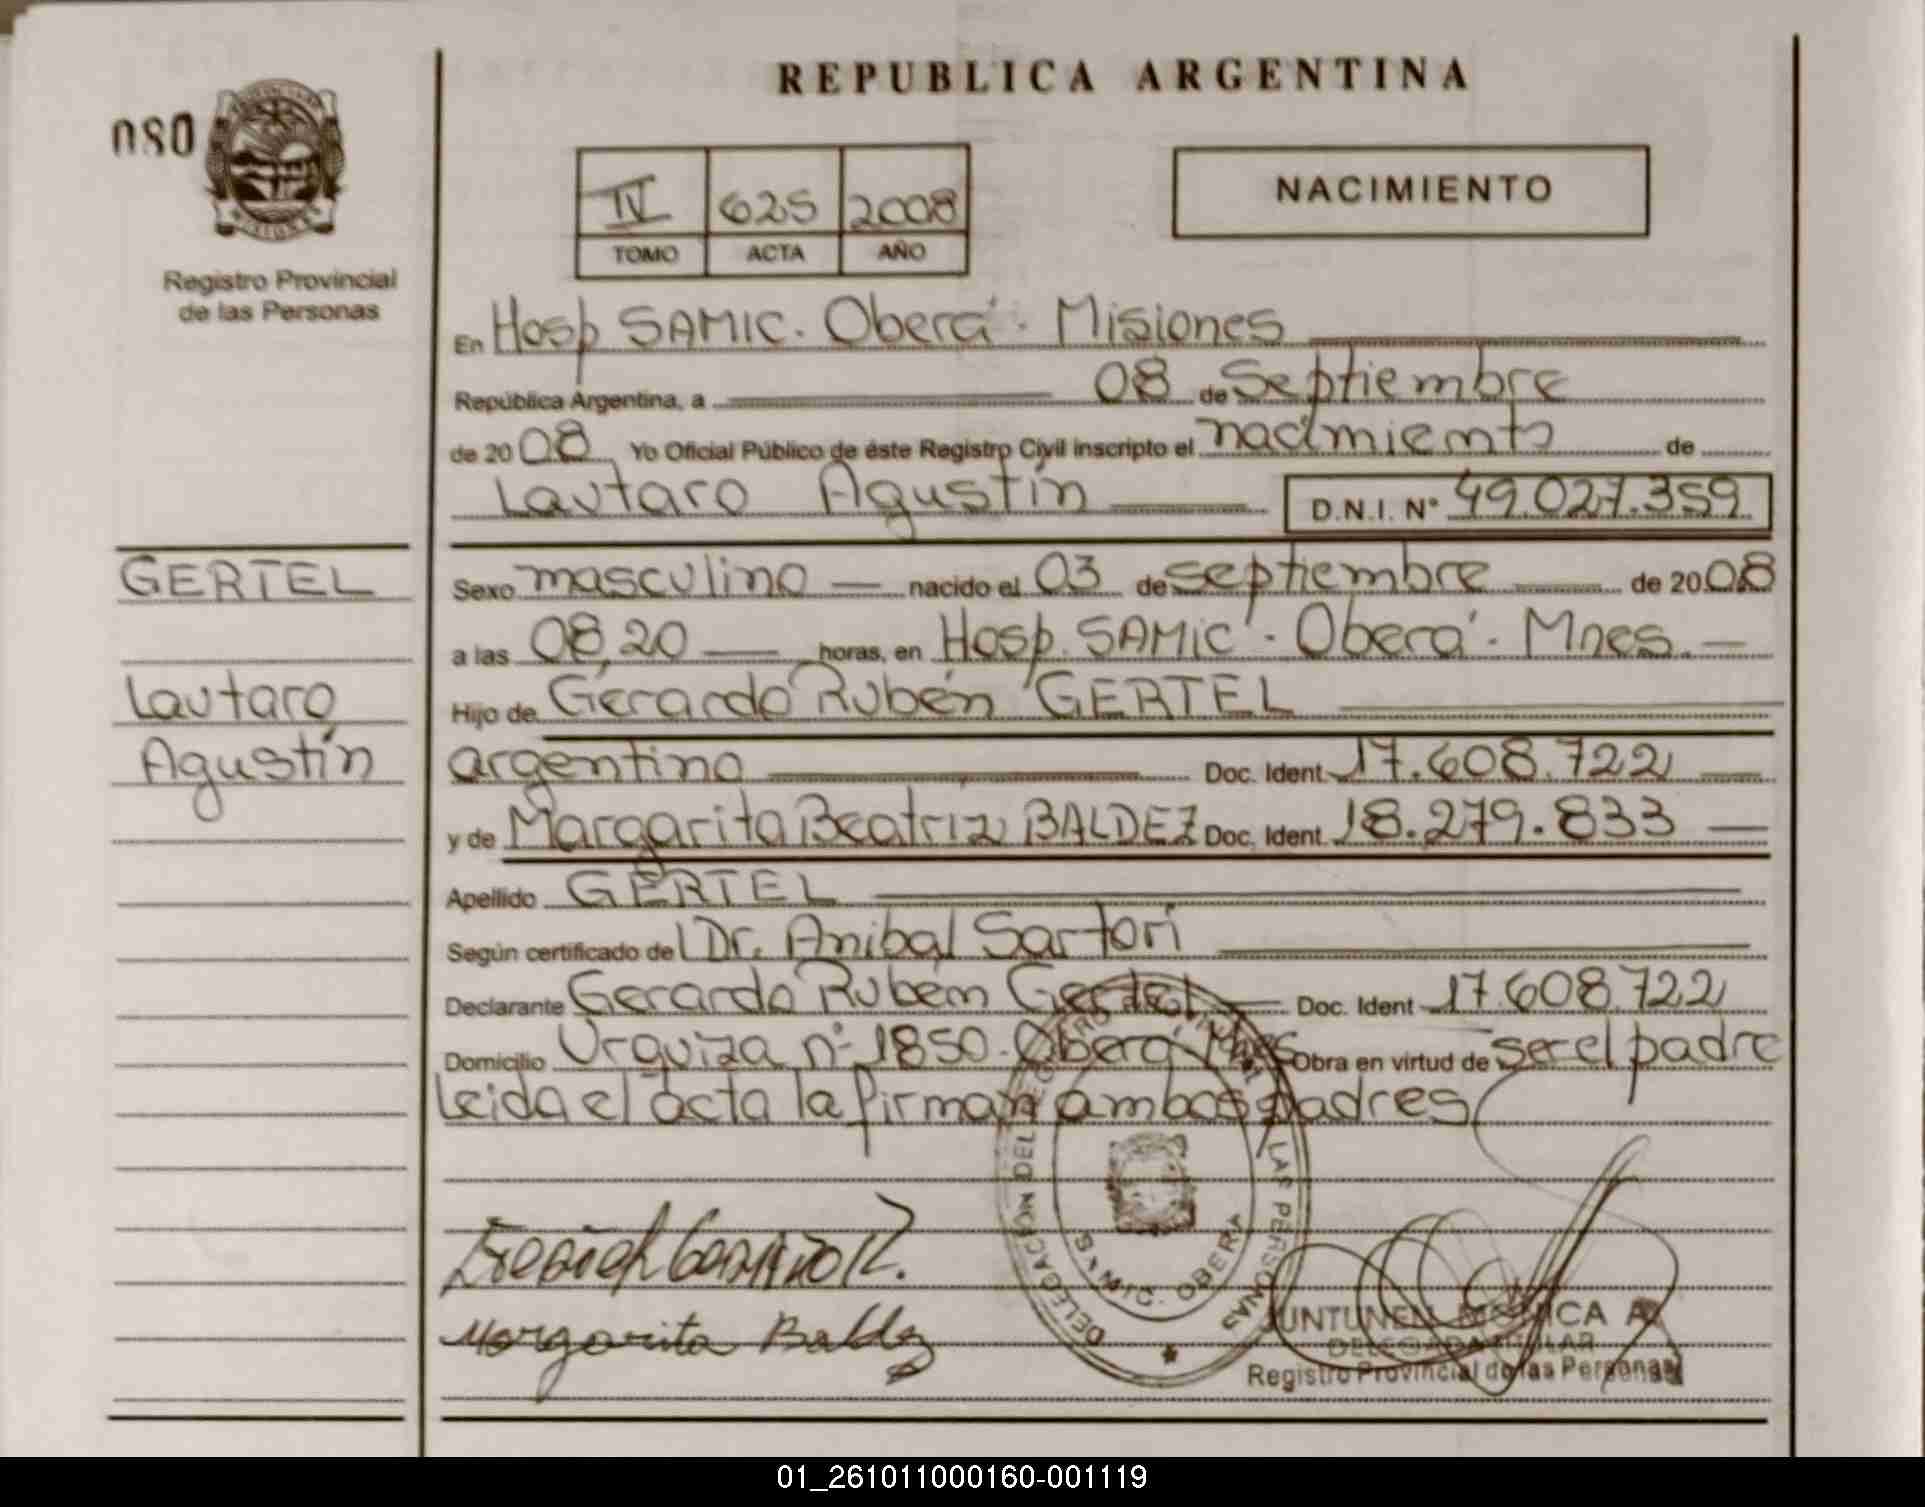 REPUBLICA ARGENTINA
080
IV 625 2008
TOMO ACTA AÑO
NACIMIENTO
Registro Provincial
de las Personas
En Hosp SAMIC. Oberá. Misiones
República Argentina, a 08 de Septiembre
de 2008 Yo Oficial Público de éste Registro Civil inscripto el nacimiento de
Lautaro Agustín D.N.I. Nº 49.027.359
GERTEL
Lautaro
Agustín
Sexo masculino nacido el 03 de septiembre de 2008
a las 08,20 horas, en Hosp. SAMIC. Oberá. Mnes.
Hijo de Gerardo Rubén GERTEL
argentino Doc. Ident. 17.608.722
y de Margarita Beatriz BALDEZ Doc. Ident. 18.279.833
Apellido GERTEL
Según certificado de Dr. Anibal Sartori
Declarante Gerardo Ruben Gertel Doc. Ident 17.608.722
Domicilio Urquiza nº 1850. Oberá. Mnes Obra en virtud de ser el padre
leida el acta la firman ambos padres
DELEGACIÓN DEL REGISTRO PROVINCIAL DE LAS PERSONAS
SAMIC. OBERA
Margarita Baldez
JUNTUNEN MONICA A.
DELEGADA TITULAR
Registro Provincial de las Personas
01_261011000160-001119